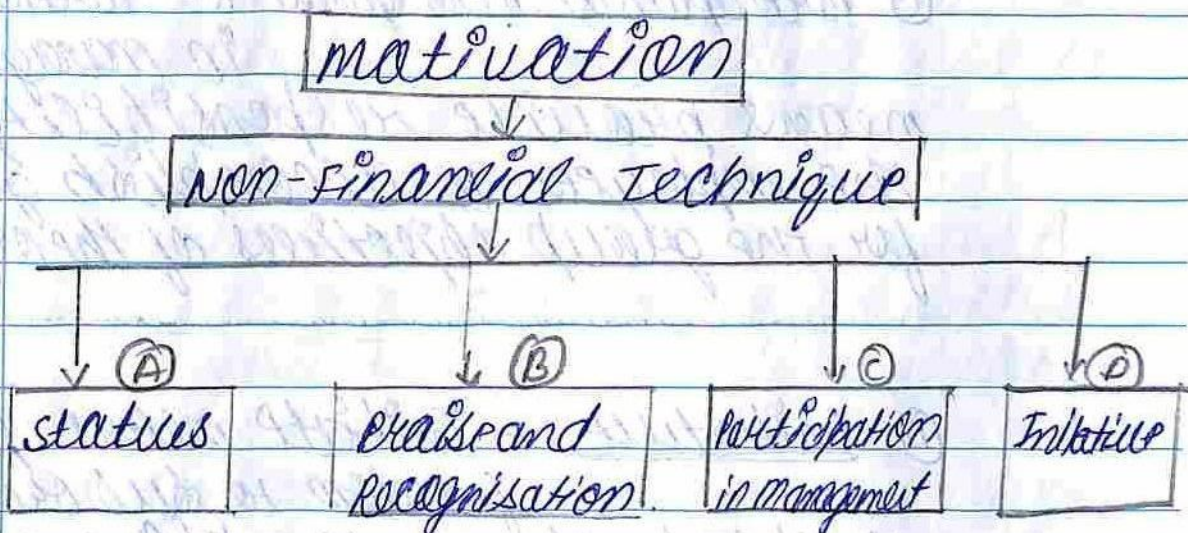 motivation
Non-Financial Technique
(A) (B) (C) (D)
status
Praise and
Recognisation
Participation
in management
Initative